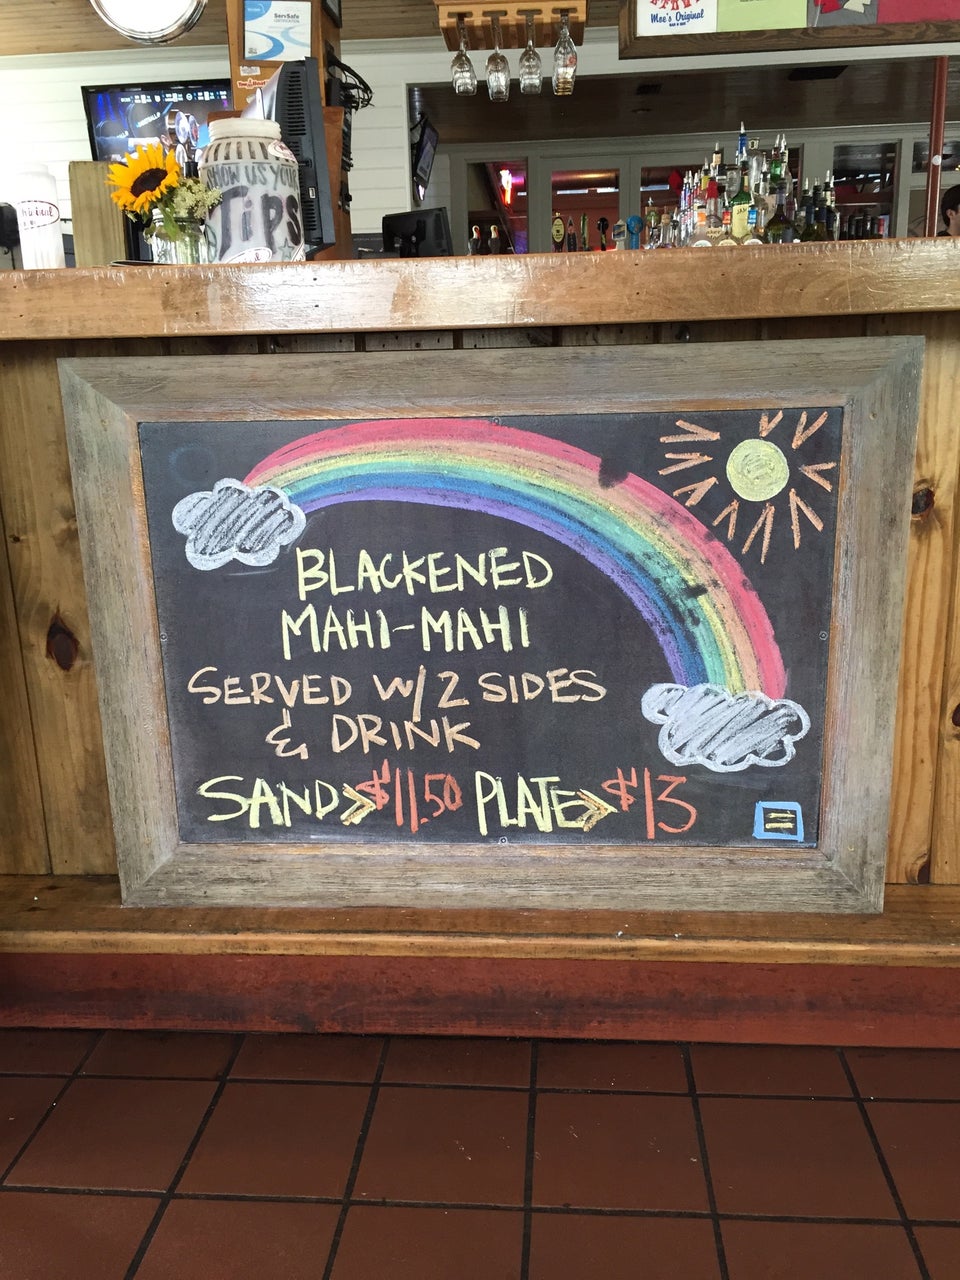 ServSafe
CERTIFICATION
Moe's Original
BAR B QUE
SHOW US YOUR
TIPS
BLACKENED
MAHI-MAHI
SERVED W/ 2 SIDES
& DRINK
SAND >> $11.50 PLATE >> $13